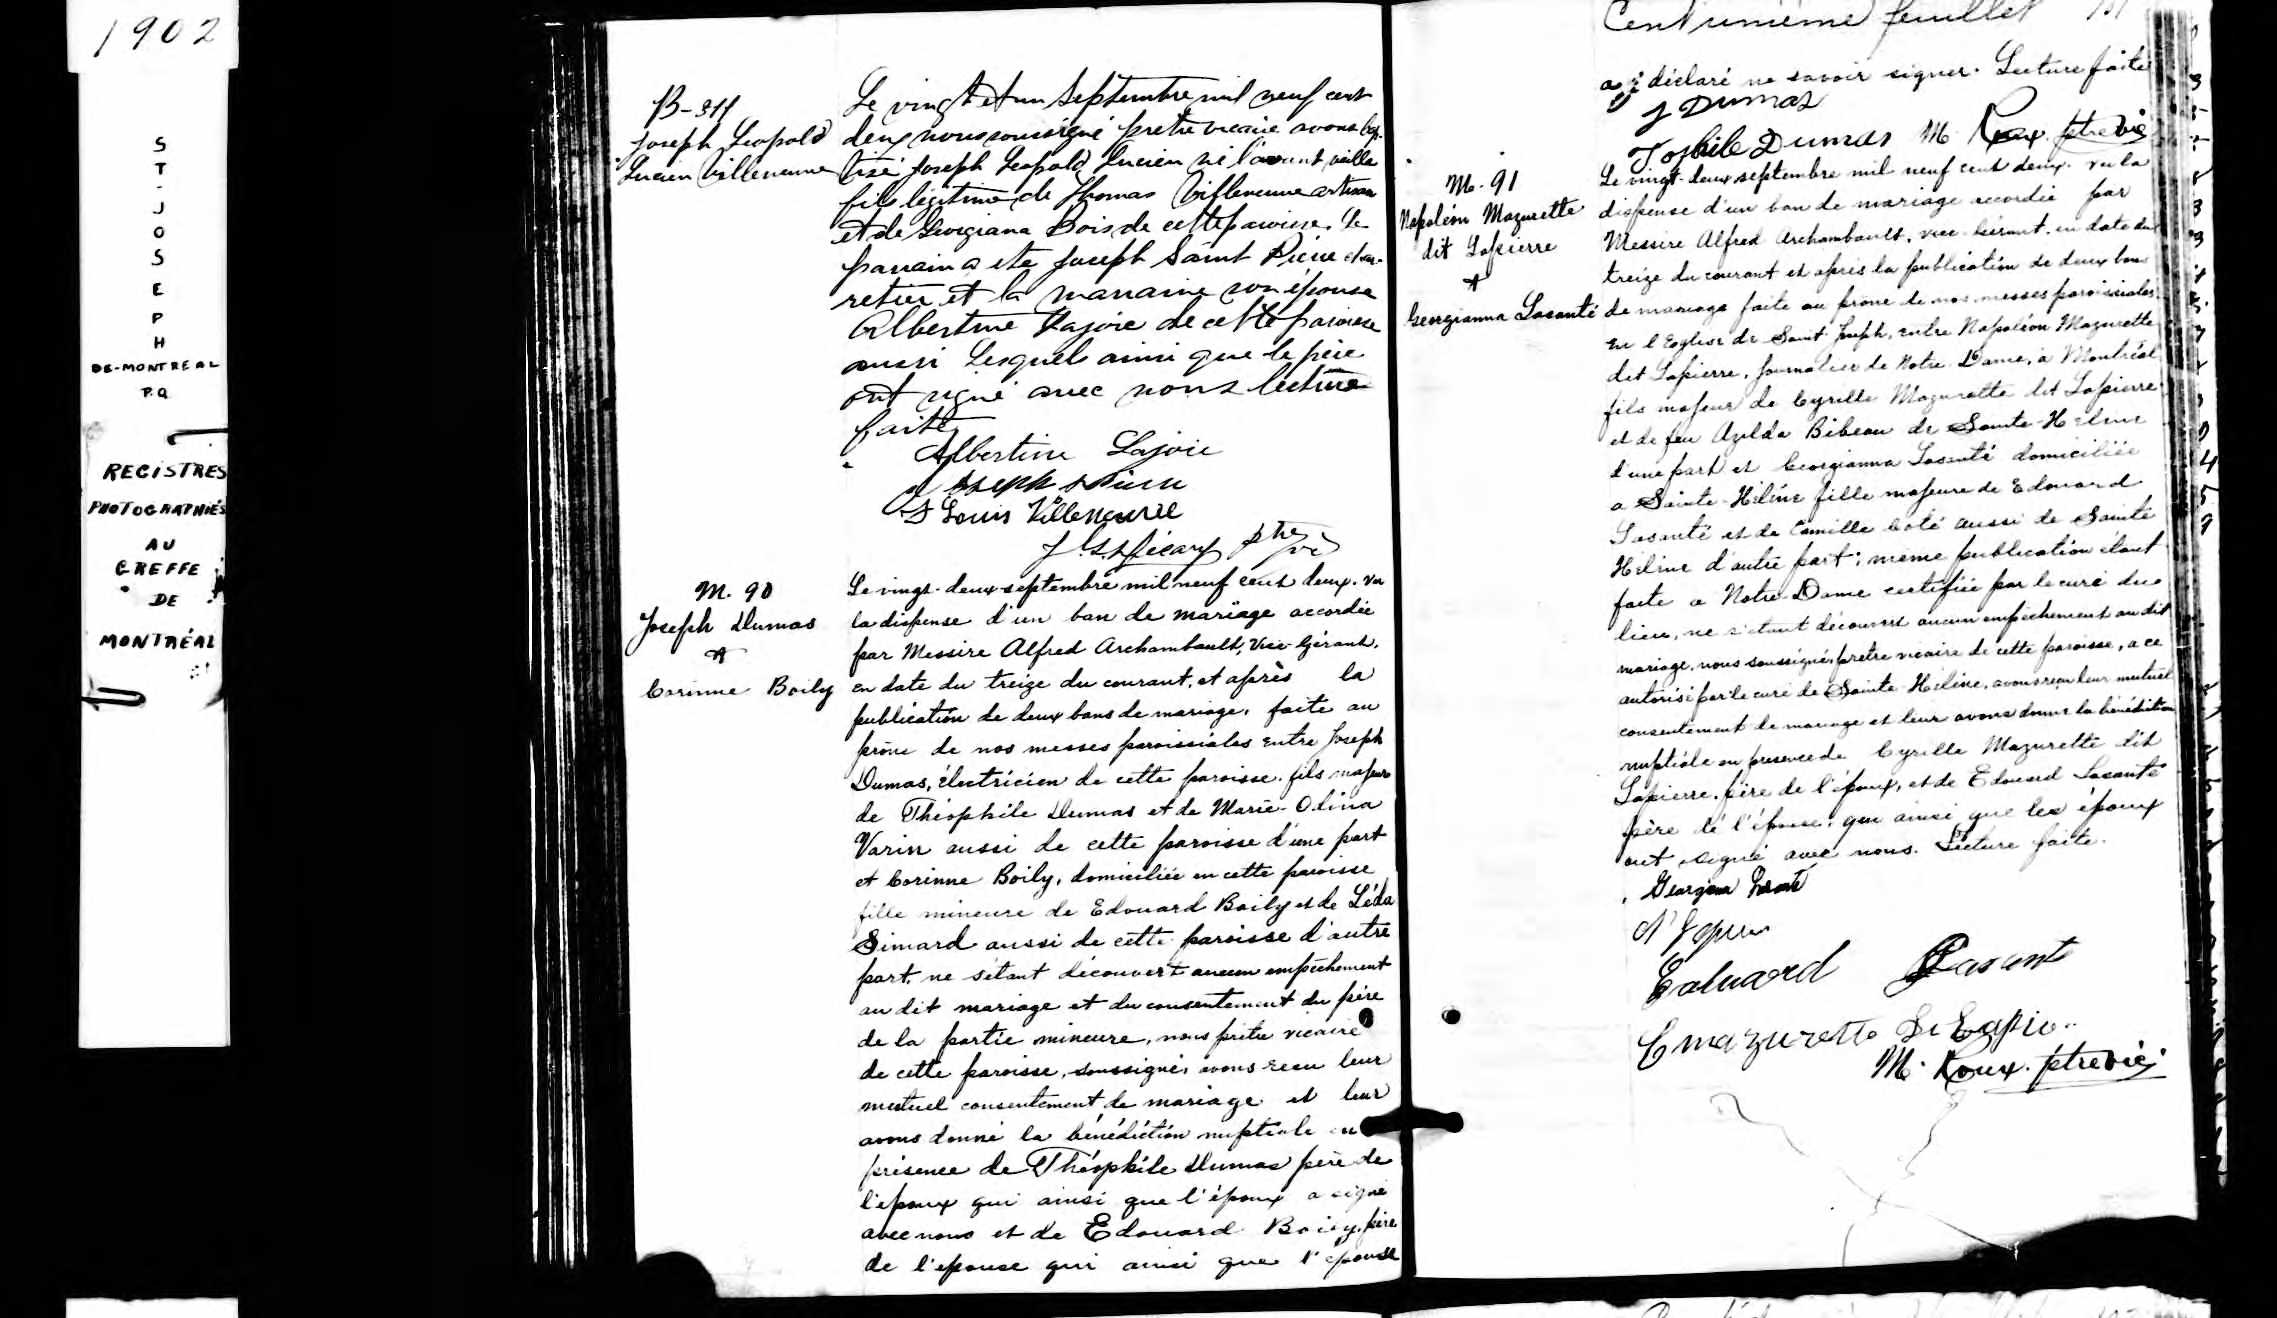 1902
ST-JOSEPH
DE-MONTREAL
P.Q.
REGISTRES
PHOTOGRAPHIÉS
AU
GREFFE
DE
MONTRÉAL
B-311
Joseph Leopold
Lucien Villeneuve
Le vingt et un Septembre mil neuf cent
deux nous soussigné prêtre vicaire avons bap-
tisé Joseph Leopold Lucien né l'avant veille
fils légitime de Thomas Villeneuve artisan
et de Georgiana Bois de cette paroisse. Le
parrain a été Joseph Saint Pierre char-
retier et la marraine son épouse
Albertine Lajoie de cette paroisse
aussi Lesquel ainsi que le père
ont signé avec nous lecture
faite
Albertine Lajoie
Joseph St Pierre
Louis Villeneuve
ptre vic
M. 90
Joseph Dumas
&
Corinne Boily
Le vingt-deux septembre mil neuf cent deux. vu
la dispense d'un ban de mariage accordée
par Messire Alfred Archambault, Vice-Gérant,
en date du treize du courant, et après la
publication de deux bans de mariage, faite au
prône de nos messes paroissiales entre Joseph
Dumas, électricien de cette paroisse. fils majeur
de Théophile Dumas et de Marie-Odina
Varin aussi de cette paroisse d'une part
et Corinne Boily, domiciliée en cette paroisse
fille mineure de Edouard Boily et de Léda
Simard aussi de cette paroisse d'autre
part, ne s'étant découvert aucun empêchement
au dit mariage et du consentement du père
de la partie mineure, nous prêtre vicaire
de cette paroisse, soussigné, avons recu leur
mutuel consentement de mariage et leur
avons donné la bénédiction nuptiale en
présence de Théophile Dumas père de
l'epoux qui ainsi que l'époux a signé
avec nous et de Edouard Boily, père
de l'epouse qui ainsi que l'épouse
Cent unième feuillet 101
a déclaré ne savoir signer. Lecture faite
J Dumas
Tophile Dumas M Roux. ptre vic
M. 91
Napoléon Mazurette
dit Lapierre
&
Georgianna Lasanté
Le vingt-deux septembre mil neuf cent deux. vu la
dispense d'un ban de mariage accordée par
Messire Alfred Archambault, vice-Gérant, en date du
treize du courant et après la publication de deux bans
de mariage faite au prône de nos messes paroissiales
en l'Eglise de Saint Joseph, entre Napoléon Mazurette
dit Lapierre, journalier de Notre-Dame, à Montréal
fils majeur de Cyrille Mazurette dit Lapierre
et de feu Azilda Bibeau de Sainte-Hélène
d'une part et Georgianna Lasanté domiciliée
a Sainte-Hélène fille majeure de Edouard
Lasanté et de Camille Coté aussi de Sainte
Hélène d'autre part; même publication étant
faite a Notre-Dame certifiée par le curé du
lieu, ne s'étant découvert aucun empêchement au dit
mariage, nous soussigné, prêtre vicaire de cette paroisse, a ce
autorisé par le curé de Sainte Hélène, avons reçu leur mutuel
consentement de mariage et leur avons donné la bénédiction
nuptiale en presence de Cyrille Mazurette dit
Lapierre, père de l'époux, et de Edouard Lasanté
père de l'épouse; qui ainsi que les époux
ont signé avec nous. Lecture faite.
Georgina Lasanté
Edouard Lasante
C mazurette
M. Roux. ptre vic